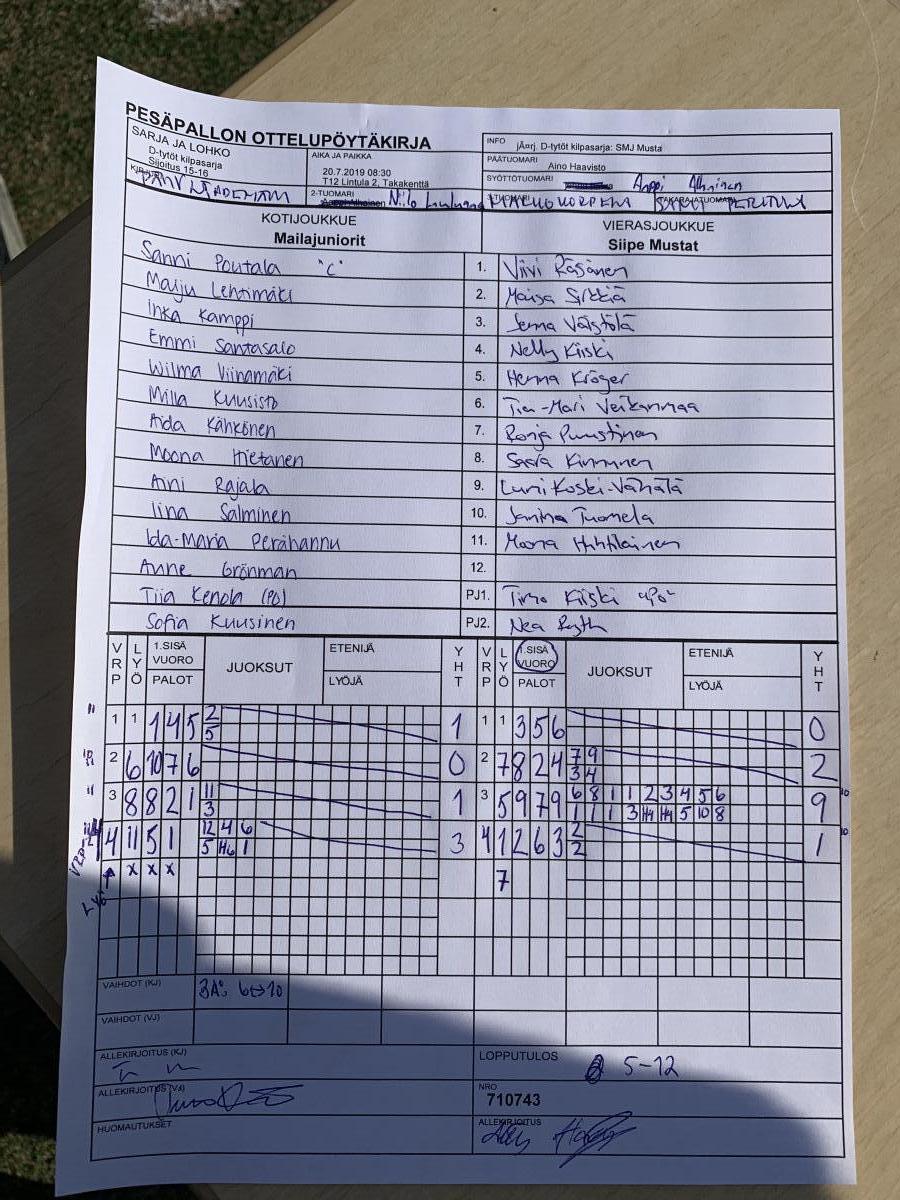 PESÄPALLON OTTELUPÖYTÄKIRJA
SARJA JA LOHKO
D-tytöt kilpasarja
Sijoitus 15-16
AIKA JA PAIKKA
20.7.2019 08:30
T12 Lintula 2, Takakenttä
INFO
jÄ¤rj. D-tytöt kilpasarja: SMJ Musta
PÄÄTUOMARI Aino Haavisto
SYÖTTÖTUOMARI Anppi Alhainen
2-TUOMARI Niilo
KOTIJOUKKUE
Mailajuniorit
VIERASJOUKKUE
Siipe Mustat
Sanni Poutala "C" 1. Viivi Räsänen
Maiju Lehtimäki 2. Maisa Sirkkiä
Inka Kamppi 3. Jenna Väistölä
Emmi Santasalo 4. Nelly Kiiski
Wilma Viinamäki 5. Henna Kröger
Milla Kuusisto 6. Tia-Mari Veikanmaa
Aida Kähkönen 7. Ronja Puustinen
Moona Hietanen 8. Saara Kinnunen
Anni Rajala 9. Lumi Koski-Vähälä
Iina Salminen 10. Janina Tuomela
Ida-Maria Perähannu 11. Moona Huhtilainen
Anne Grönman 12.
Tiia Kenola (PO) PJ1. Timo Kiiski "PO"
Sofia Kuusinen PJ2. Nea
VRP LYÖ 1.SISÄ VUORO PALOT JUOKSUT ETENIJÄ LYÖJÄ YHT VRP LYÖ 1.SISÄ VUORO PALOT JUOKSUT ETENIJÄ LYÖJÄ YHT
1 1 1 4 5 2 1 1 1 3 5 6 0
5
2 6 10 7 6 0 2 7 8 2 4 7 9 2
3 4
3 8 8 2 1 11 1 3 5 9 7 9 6 8 1 1 2 3 4 5 6 9
3 1 1 1 3 H4 H4 5 10 8
4 11 5 1 12 4 6 3 4 1 2 6 3 2 1
5 H6 1 2
x x x 7
VAIHDOT (KJ) 3A: 6↔10
VAIHDOT (VJ)
ALLEKIRJOITUS (KJ)
LOPPUTULOS 5-12
ALLEKIRJOITUS (VJ)
NRO
710743
HUOMAUTUKSET
ALLEKIRJOITUS